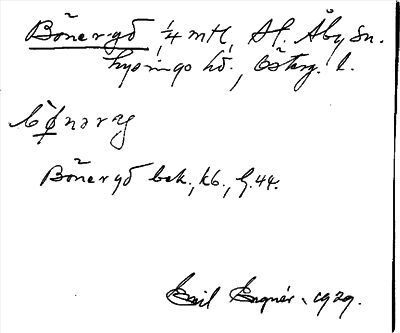 Bönergd, 1/4 mtl, St. Åby sn.
Lysings hd., Österg. l.
Bönergd bek., kb., G. 44.
Emil Engnér, 1929.